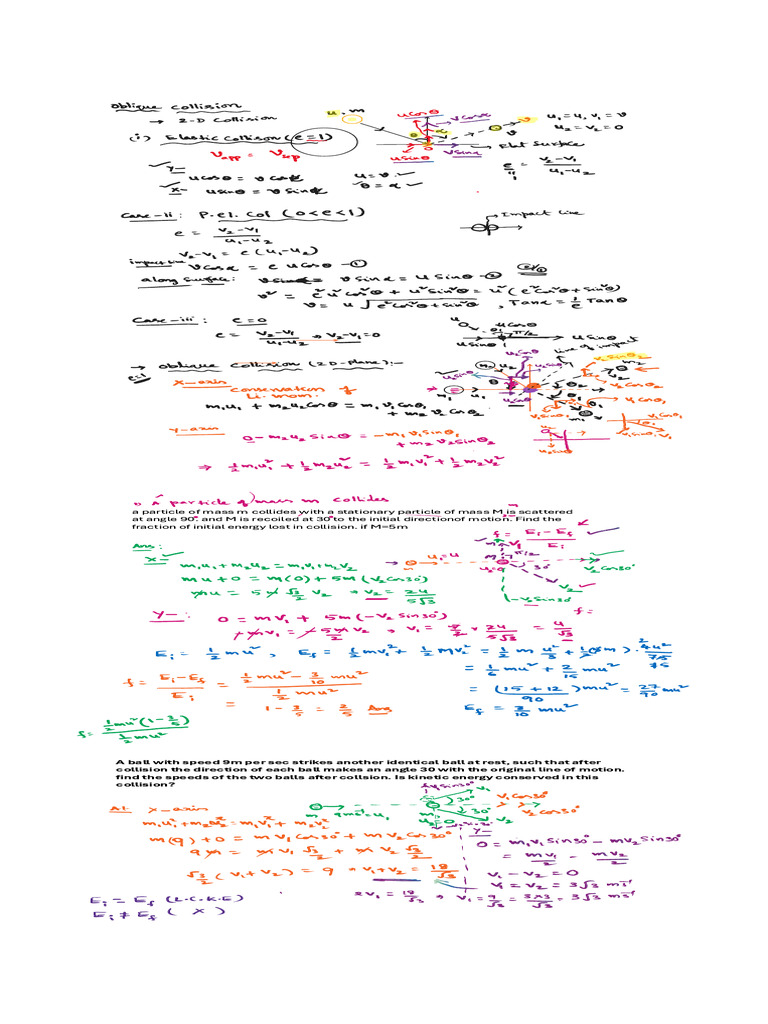 Oblique Collision
→ 2-D Collision
u, m
u cosθ
v cosα
v
u sinθ
v sinα
→ Flat Surface
u₁ = u, v₁ = v
u₂ = v₂ = 0
(i) Elastic Collison (e=1)
Vapp = Vsep
e = (v₂-v₁)/(u₁-u₂)
y- u cosθ = v cosα
u = v.
x- u sinθ = v sinα
θ = α
Case-ii: P. el. Col (0<e<1)
→ Impact Line
e = (v₂-v₁)/(u₁-u₂)
v₂-v₁ = e(u₁-u₂)
impact line v cosα = e u cosθ -①
along surface: v sinα = u sinθ -②
v² = e²u²cos²θ + u²sin²θ = u²(e²cos²θ + sin²θ)
v = u√(e²cos²θ+sin²θ) , Tanα = (1/e) Tanθ
Case-iii: e=0
e = (v₂-v₁)/(u₁-u₂) → v₂-v₁=0
u cosθ
u sinθ
u sinθ
line of impact
→ Oblique Collision (2D-plane):-
e=1
x-axis
conservation of
Li. mom.
m₁u₁ + m₂u₂cosθ = m₁v₁cosθ₁
+ m₂v₂cosθ₂
v₂ sinθ₂
v₂ cosθ₂
v₁ cosθ₁
v₁ sinθ₁
y-axis
0 - m₂u₂ sinθ = -m₁v₁sinθ₁
+ m₂v₂sinθ₂
u₂ sinθ
⇒ ½m₁u₁² + ½m₂u₂² = ½m₁v₁² + ½m₂v₂²
A particle of mass m collides
a particle of mass m collides with a stationary particle of mass M is scattered
at angle 90° and M is recoiled at 30° to the initial directionof motion. Find the
fraction of initial energy lost in collision. if M=5m
f = (Ei - Ef)/Ei
Ans:
x-
m₁u₁ + m₂u₂ = m₁v₁+m₂v₂
mu + 0 = m(0) + 5m(v₂cos30°)
mu = 5m (√3/2) v₂ → v₂ = 2u/(5√3)
u₁=u
30°
v₂cos30°
v₂
-v₂sin30°
f =
y-:
0 = mv₁ + 5m(-v₂sin30°)
+mv₁ = +5m v₂/2 → v₁ = 5/2 × 2u/(5√3) = u/√3
Ei = ½mu² , Ef = ½mv₁² + ½Mv₂² = ½m u²/3 + ½(5m) · 4u²/75
= (1/6)mu² + (2/15)mu²
f = (Ei-Ef)/Ei = (½mu² - (3/10)mu²)/(½mu²)
= ((15+12)/90)mu² = (27/90)mu²
= 1-3/5 = 2/5 Ans
Ef = (3/10)mu²
f = ½mu²(1-3/5)/(½mu²)
A ball with speed 9m per sec strikes another identical ball at rest, such that after
collision the direction of each ball makes an angle 30 with the original line of motion.
find the speeds of the two balls after collsion. Is kinetic energy conserved in this
collision?
x-axis
m
9ms⁻¹=u₁
u₂=0
30°
30°
v₁
v₂
v₁cos30°
v₂cos30°
m₁u₁+m₂u₂=m₁v₁+m₂v₂
m(9)+0 = mv₁cos30°+mv₂cos30°
9m = mv₁ √3/2 + mv₂ √3/2
√3/2 (v₁+v₂) = 9 → v₁+v₂ = 18/√3
y-
0 = m₁v₁sin30° - mv₂sin30°
= mv₁/2 - mv₂/2
v₁-v₂=0
v₁=v₂=3√3 ms⁻¹
2v₁ = 18/√3 → v₁=9/√3 = (3×3)/√3 = 3√3 ms⁻¹
Ei = Ef (L.C.K.E)
Ei ≠ Ef (X)